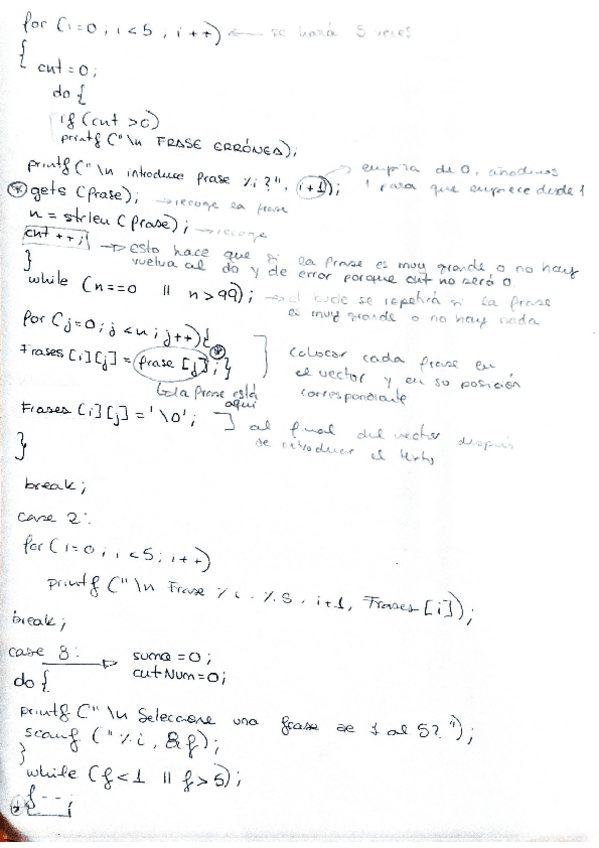 for (i=0; i<5, i++) ← se hará 5 veces
{
cnt=0;
do {
if (cnt >0)
printf ("\n FRASE ERRÓNEA);
printf ("\n introduce frase %i?", i+1); → empieza de 0, añadimos
1 para que empiece desde 1
* gets (frase); → recoge la frase
n = strlen (frase); → recoge
cnt ++; → esto hace que si la frase es muy grande o no hay
vuelva al do y de error porque cnt no será 0
}
while (n==0 || n>99); → el bucle se repetirá si la frase
es muy grande o no hay nada
for (j=0; j<n; j++){
Frases [i][j] = frase [j]; } *
colocar cada frase en
el vector y en su posición
correspondiente
la frase está
aquí
Frases [i][j] = '\0'; ] al final del vector después
de introducir el texto
}
break;
case 2:
for (i=0; i<5; i++)
printf ("\n Frase %i. %s, i+1, Frases [i]);
break;
case 3: → suma =0;
cntNum=0;
do {
printf ("\n Seleccione una frase de 1 al 5? ");
scanf ("%i, &f);
}
while (f<1 || f>5);